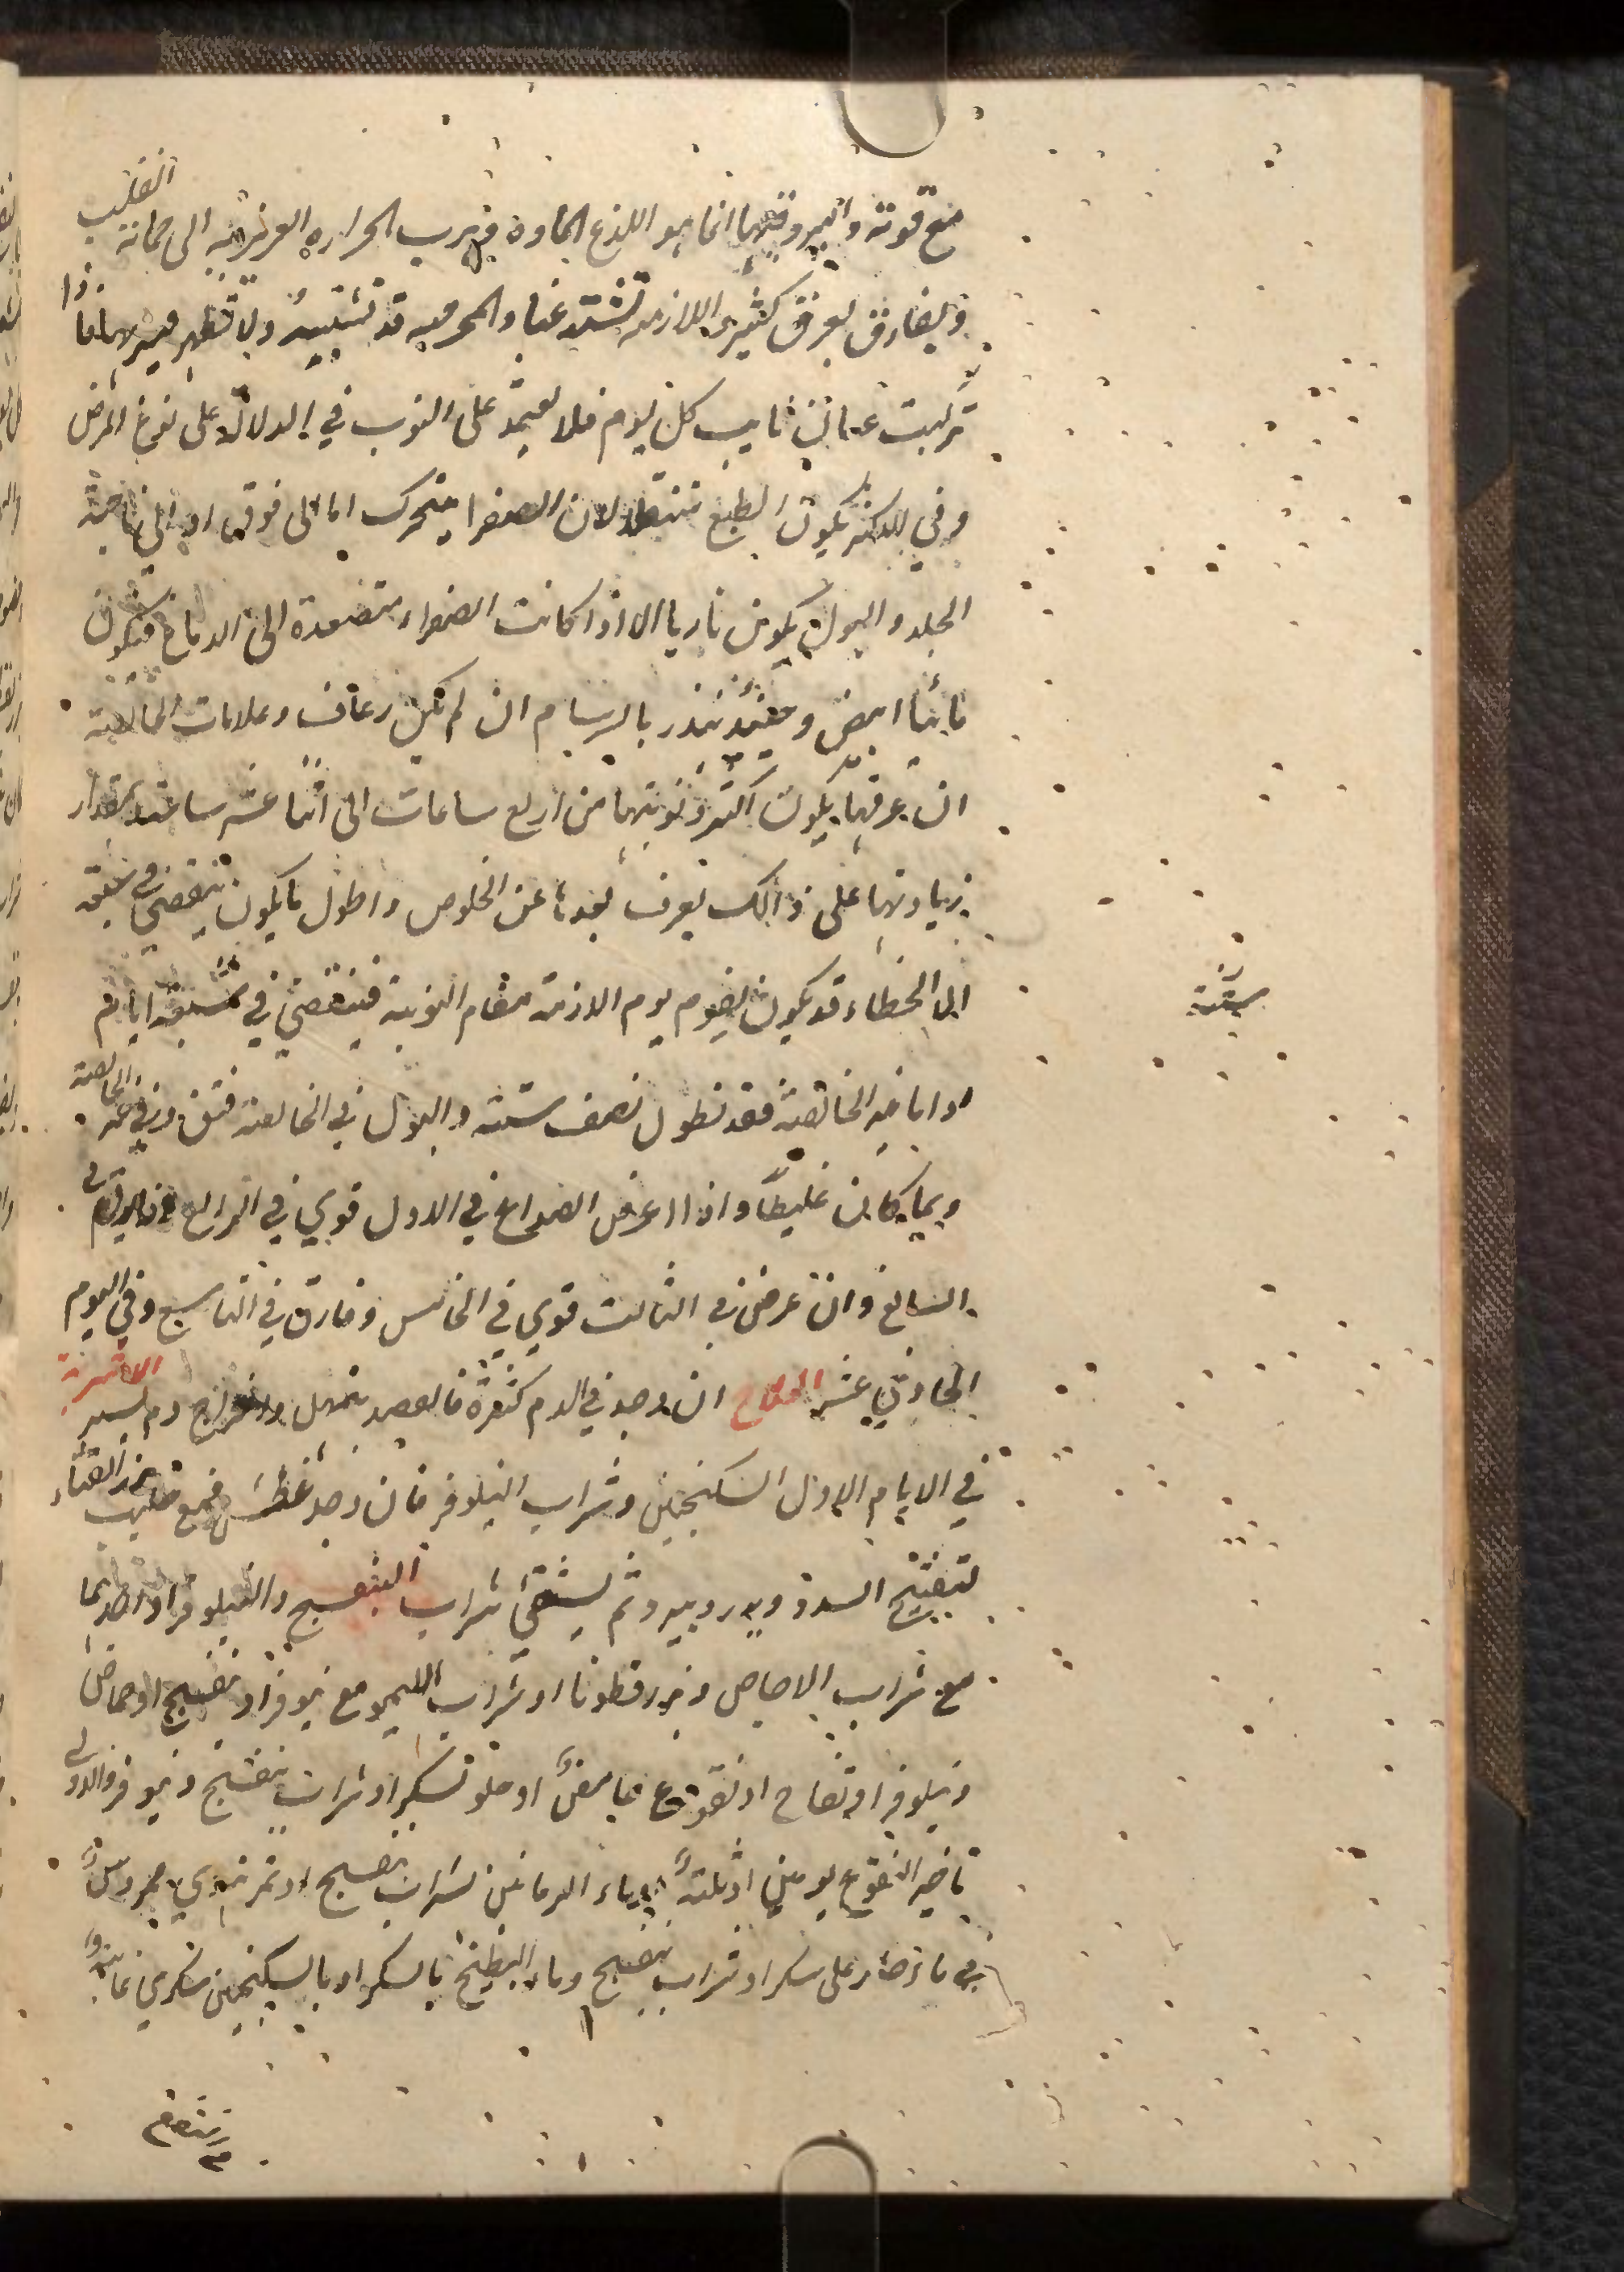 مع قوته والبرد فيها انما هو اللذع المادة فهرب الحرارة الغريزية الى حماية القلب
ويفارق بعرق كثير واللازمة تشتد غبا والمحرقة قد تشتبه ولا تظهر فترتها فاذا
تركبت غبان نابت كل يوم فلا تعتمد على النوب في الدلالة على نوع المرض
وفي الاكثر يكون الطبع لان الصفرا متحرك اما الى فوق او الى ناحية
الجلد والبول يكون ناريا الا اذا كانت الصفراء متصعدة الى الدماغ فيكون
مائيا ابيض وحينئذ ينذر بالسرسام ان لم يكن رعاف وعلامات الخالصة
ان عرقها يكون اكثر ونوبتها من اربع ساعات الى اثنا عشر ساعة بمقدار
زيادتها على ذالك يعرف بعدها عن الخلوص واطول ما يكون ينقضي في سبعة
الا لخطاء وقد يكون يقوم يوم الازمة مقام النوبة فينقضي في سبعة ايام
ستة
واما غير الخالصة فقد تطول نصف سنة والبول في الخالصة وفي غير الخالصة
وبما كان غليظا واذا عرض الصداع في الاول قوي في الرابع
السابع وان عرض في الثالث قوي في الخامس وفارق في التاسع وفي اليوم
الحادي عشر العلاج ان وجد في الدم كثرة فالفصد بتمهل واخراج دم يسير الاشربة
في الايام الاول السكنجبين وشراب النيلوفر فان وجد عطش فمع حليب بزر القثاء
لتفتيح السدد ويدر ويبرد ثم يسقي شراب البنفسج والنيلوفر او احدهما
مع شراب الاجاص وبزرقطونا او شراب الليمو مع نيوفر او بنفسج او حماض
ونيلوفر او تفاح او نقوع حامض او حلو بسكر او شراب بنفسج ونيوفر والاولى
تاخير النقوع يومين او ثلثة وماء الرمانين بشراب بنفسج او تمر هندي ممروس
في ماء حار على سكر او شراب بنفسج وماء البطيخ بالسكر او بالسكنجبين سكري فانه